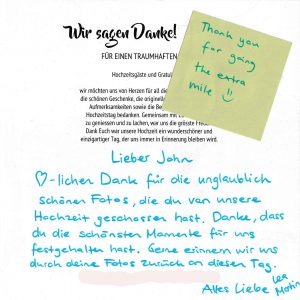 Wir sagen Danke!
FÜR EINEN TRAUMHAFTEN
Hochzeitsgäste und Gratul
wir möchten uns von Herzen für all die
die schönen Geschenke, die originell
Aufmerksamkeiten sowie die Be
Hochzeitstag bedanken. Gemeinsam mit
zu geniessen und zu lachen, war uns die grösste Freu
Dank Euch war unsere Hochzeit ein wunderschöner und
einzigartiger Tag, der uns immer in Erinnerung bleiben wird.
Thank you
for going
the extra
mile
Lieber John
-lichen Dank für die unglaublich
schönen Fotos, die du von unsere
Hochzeit geschossen hast. Danke, dass
du die schönsten Momente für uns
festgehalten hast. Gerne erinnern wir uns
durch deine Fotos zurück an diesen Tag.
Alles Liebe Lea
Martin